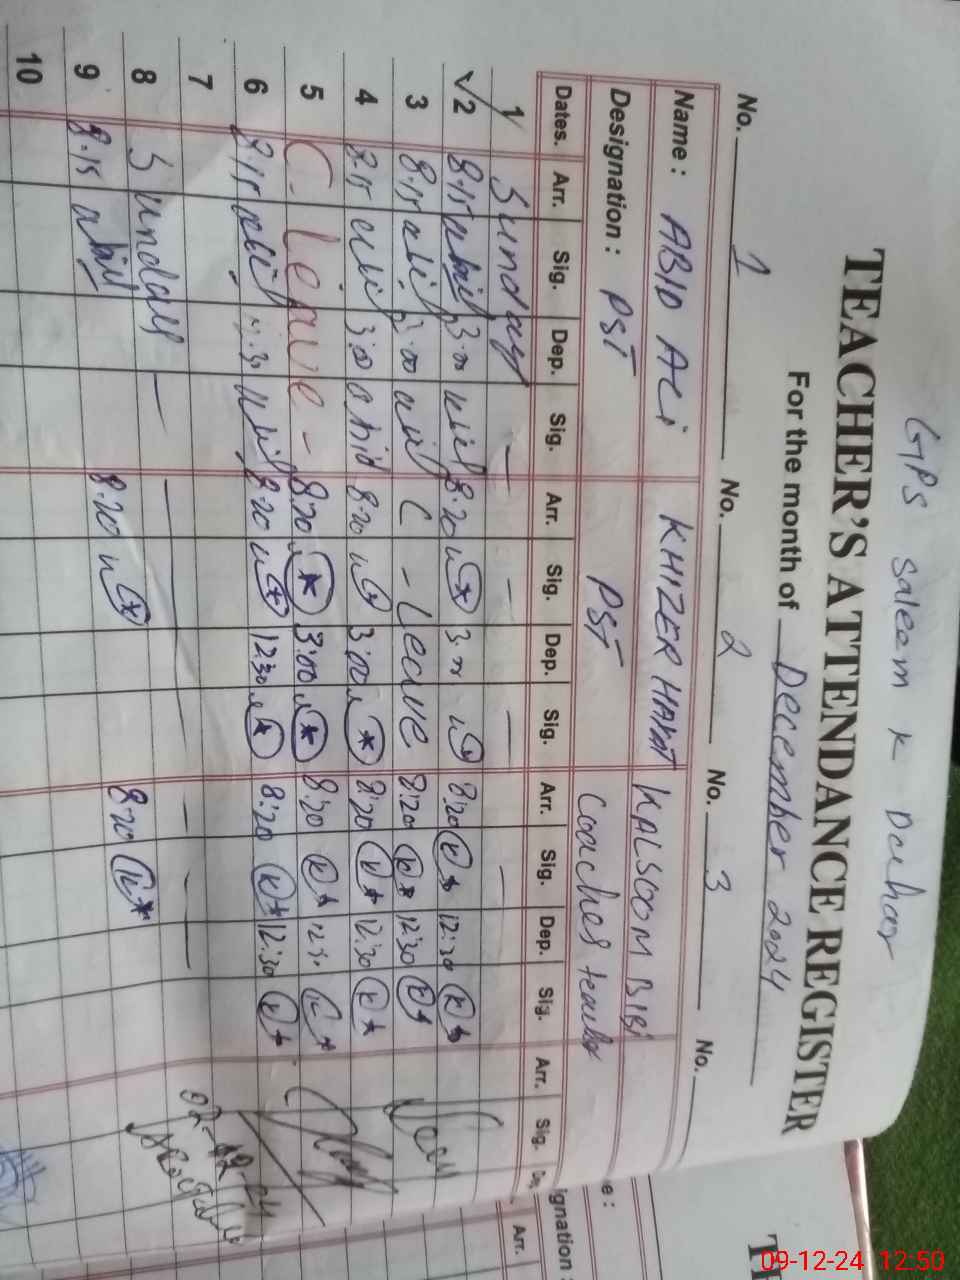 GPS Saleem K Dahar
TEACHER'S ATTENDANCE REGISTER
For the month of December 2024
No. 1 No. 2 No. 3 No.
Name : ABID ALI KHIZER HAYAT KALSOOM BIBI
Designation : PST PST Coaches teacher
Dates. Arr. Sig. Dep. Sig. Arr. Sig. Dep. Sig. Arr. Sig. Dep. Sig. Arr. Sig.
1 Sunday — — — —
√2 8.15 abid 3.00 abid 8.20 3.00 8:20 K 12:30 K
3 8.15 abid 3.00 abid C - Leave 8:20 K 12:30 K
4 8.15 abid 3.00 abid 8.20 3:00 8:20 K 12:30 K
5 C. Leave - 8:20 3:00 8:20 K 12:30 K
6 8.15 abid abid 8.20 12:30 8:20 K 12:30 K
7
8 Sunday — — — —
9 8.15 abid 8.20 8.20 K
10
02-12-24
ignation :
e :
Arr.
09-12-24 12:50